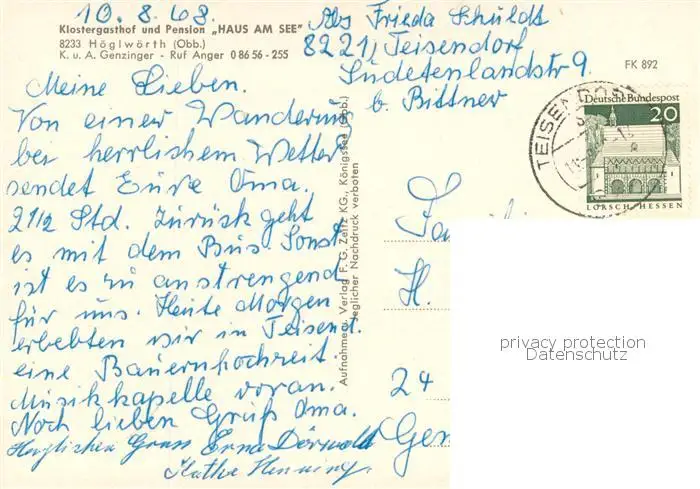 10.8.68.
Klostergasthof und Pension „HAUS AM SEE"
8233 Höglwörth (Obb.)
K. u. A. Genzinger - Ruf Anger 0 86 56 - 255
Abs Frieda Schuldt
8221, Teisendorf
Sudetenlandstr 9.
b. Bittner
FK 892
Deutsche Bundespost
20
LORSCH · HESSEN
TEISENDORF
Meine Lieben.
Von einer Wanderung
bei herrlichem Wetter
sendet Eure Oma.
2 1/2 Std. Zurück geht
es mit dem Bus Sonst
ist es zu anstrengend
für uns. Heute Morgen
erlebten wir in Teisend.
eine Bauernhochzeit.
Musikkapelle voran.
Noch lieben Gruß Oma.
Herzlichen Gruss Erna Dörwald
Käthe Henning.
Aufnahme u. Verlag F. G. Zeitz KG., Königssee (Obb.)
Jeglicher Nachdruck verboten
Famili
H.
24
Gen
privacy protection
Datenschutz